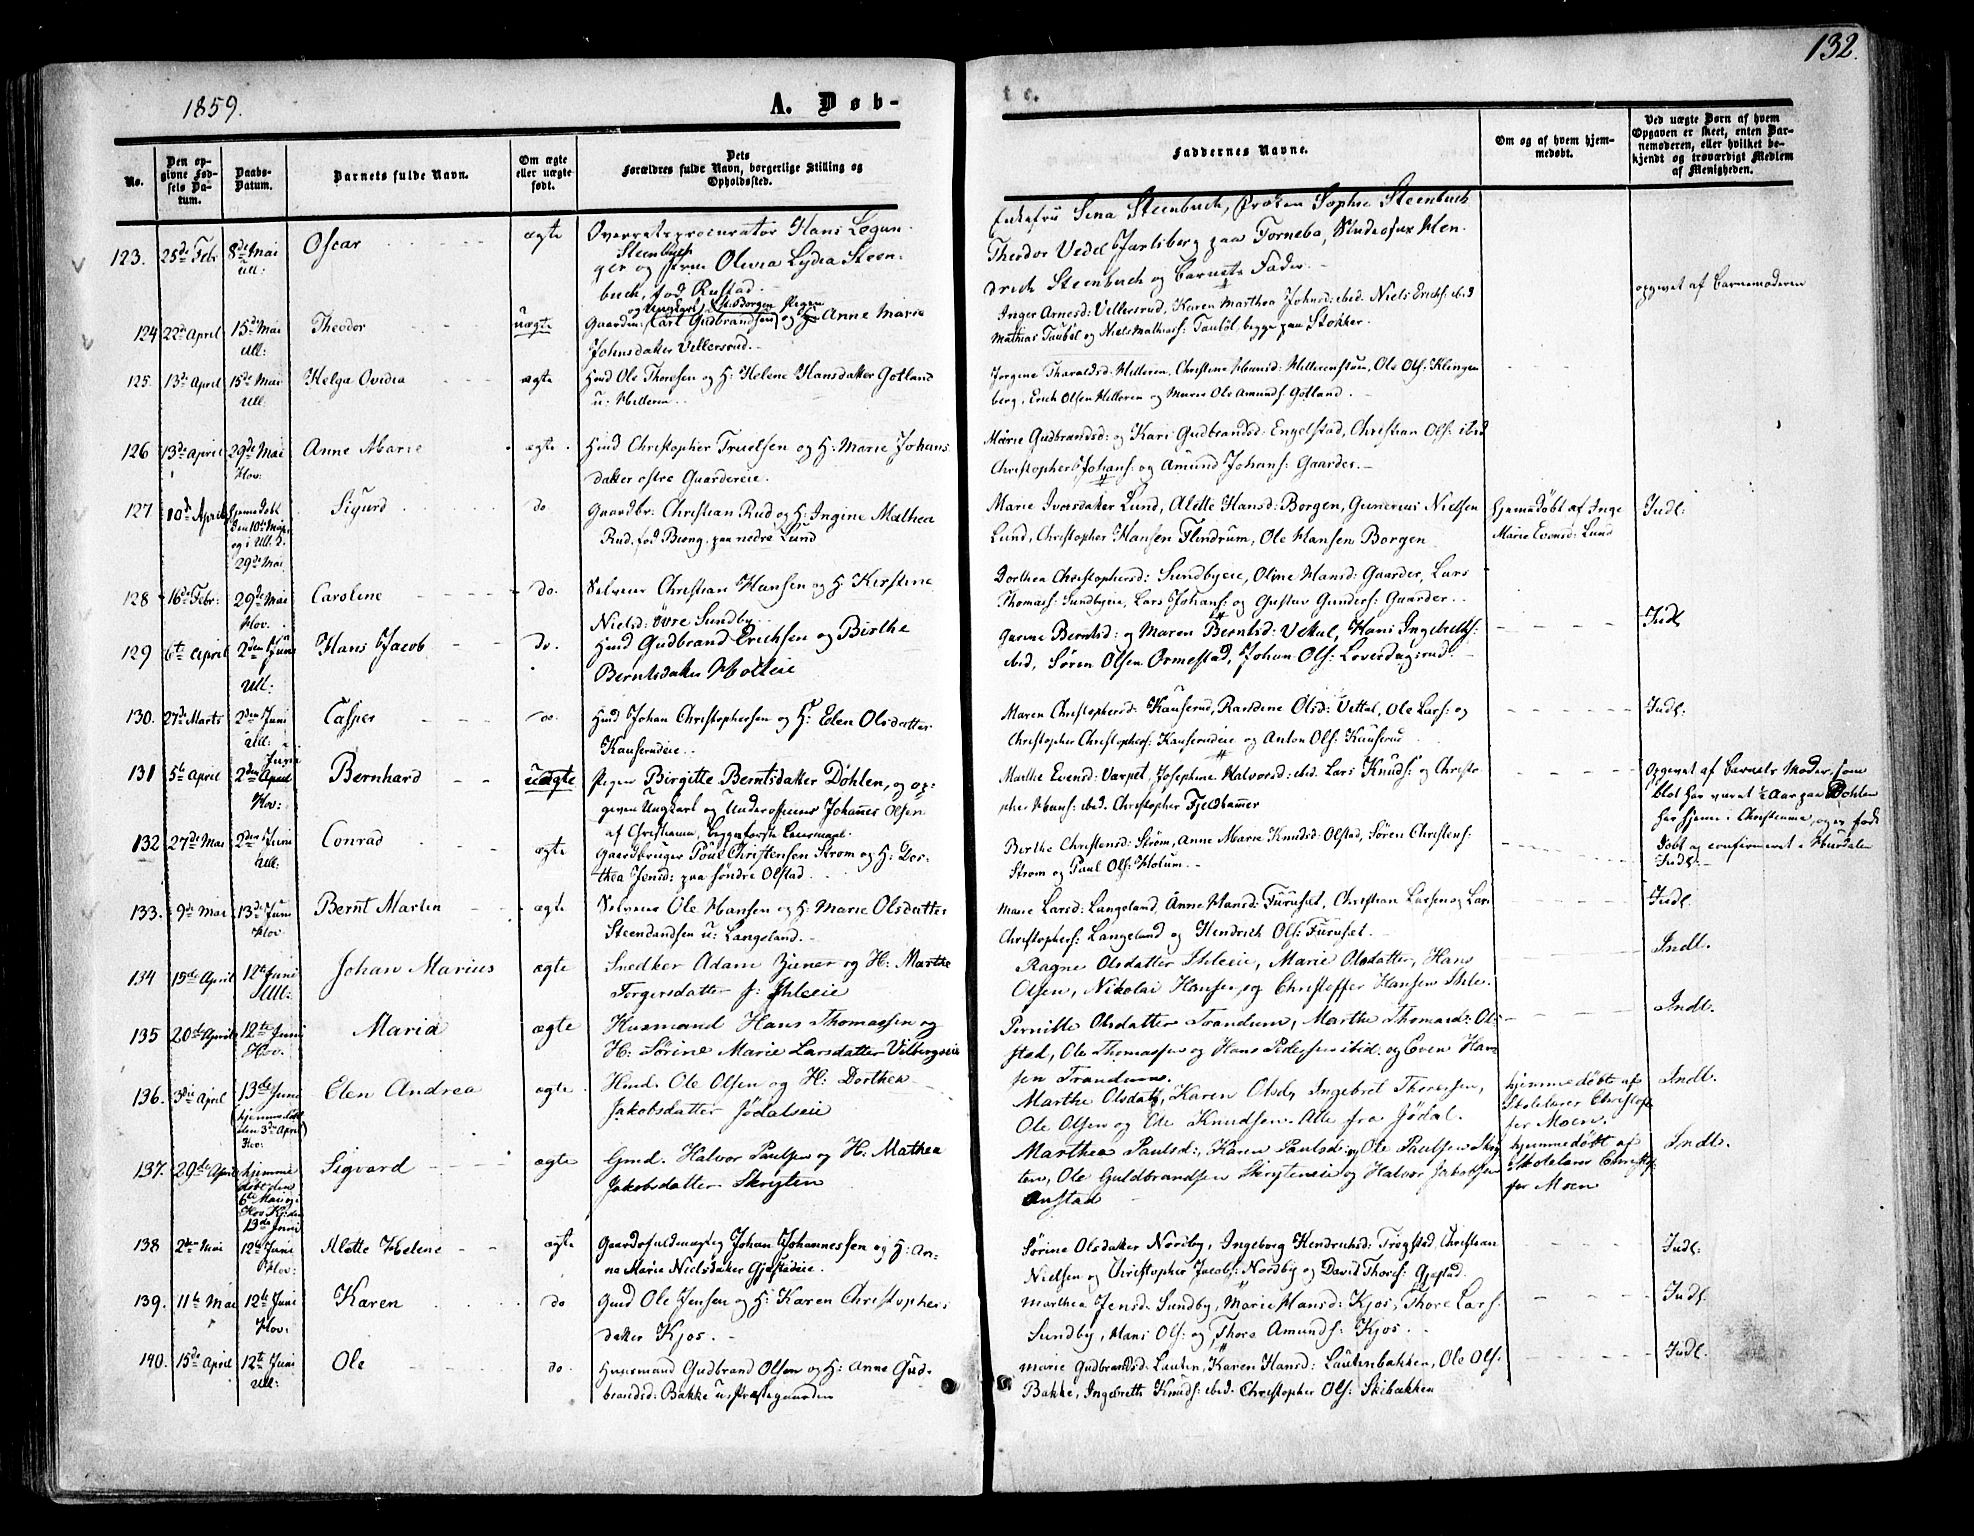 132.
1859.
A. Døb-
te.
No.
Den op-
givne Fød-
sels Da-
tum.
Daabs-
Datum.
Barnets fulde Navn.
Om ægte
eller uægte
født.
Dets
Forældres fulde Navn, borgerlige Stilling og
Opholdssted.
Faddernes Navne.
Om og af hvem hjem-
medøbt.
Ved uægte Børn af hvem
Opgaven er skeet, enten Bar-
nemoderen, eller hvilket be-
kjendt og troværdigt Medlem
af Menigheden.
123. 25de Febr 8de Mai
Ull: Oscar ægte Overretsprocurator Hans
Steenbuch
og Olivia Lydia Steen-
buch, fød Rustad.
Enkefru Sina Steenbuch, Frøken Sophie Steenbuch
Theodor Vedel Jarlsberg paa Tornebo, Hen-
drich Steenbuch og Barnets Fader.
124 22de April 15de Mai
Ull: Theodor uægte og Ungkarl Borgen Pigen
Gaardm: Carl Gudbrandsen og Anne Marie
Johnsdatter Vellersrud.
Inger Arnesd: Vellersrud, Karen Marthea Johnsd: ibid. Niels Erichs: ibid
Mathias Taubøl og Niels Mathias: Taubøl begge paa Stokker.
opgivet af Barnemoderen
125. 13de April 15de Mai
Ull. Helga Ovidia ægte Hmd Ole Thoresen og H: Helene Hansdatter Gotland
u. Melleren.
Jørgine Tharaldsd. Melleren, Christine Hansd: Ole Ols: Klingen
berg, Erich Olsen Melleren og Ole Amunds: Gotland.
126 13de April 29de Mai
Hov. Anne Marie ægte Hmd Christopher Truelsen og H: Marie Johans
datter østre Gaardereie.
Marie Gudbrandsd: og Kari Gudbrandsd: Engelstad, Christian Ols: ibid
Christopher Johans: og Amund Johans: Gaarder.
127 10de April Hjemmedøbt
den 10de Mai
og i Ull. K.
29de Mai. Sigurd do. Gaardbr. Christian Rud og H: Ingine Mathea
Rud, fød Bieng. paa nedre Lund
Marie Iversdatter Lund, Alette Hansd: Borgen, Gunerius Nielsen
Lund, Christopher Hansen Flendrum, Ole Hansen Borgen
hjemmedøbt af Inge
Marie Evensd: Lund
Indl:
128 16de Febr: 29de Mai
Hov. Caroline do. Selveier Christian Hansen og H: Kirstine
Nielsd: øvre Sundby.
Dorthea Christophersd: Sundbyeie, Oline Hansd: Gaarder, Lars
Thomass: Sundbyeie, Lars Johans: og Gustav Gunders: Gaarder.
Indl
129 6te April 2den Juni
Ull: Hans Jacob do. Hmd Gudbrand Erichsen og Birthe
Berntsdatter Holteie
Berntsd: og Maren Berntsd: Vekul, Hans Ingebreths:
ibid, Søren Olsen Ormestad, Johan Ols: Loverdagsrud.
130. 27de Marts 2den Juni
Ull: Casper do. Hmd Johan Christophersen og H: Elen Olsdatter
Kauserudeie.
Maren Christophersd: Kauserud, Olsd: Vettal, Ole Lars: og
Christopher Christophers: Kauserudeie og Anton Ols: Kauserud
Indl:
131 5te April Juni
2den April
Hov: Bernhard uægte Pigen Birgitte Berntsdatter Døhlen, og op-
given Ungkarl og Underofficeer Johannes Olsen
af Christiania, begges første Leiermaal.
Marthe Evensd: Varpet, Josephine Halvorsd: ibid. Lars Knuds: og Christo
pher Hans: ibid. Christopher Fjeldhammer
Opgivet af Barnets Moder, som
blot har været ½ Aar paa Døhlen
har hjemme i Christiania, og er født
døbt og confirmeret i Hurdalen
Indl:
132 27de Mai 2den Juni
Ull. Conrad ægte Gaardbruger Poul Christensen Strøm og H: Dor-
thea Jensd: paa Søndre Olstad.
Berthe Christensd: Strøm, Anne Marie Knudsd: Olstad, Søren Christens:
Strøm og Paul Ols: Holum.
133. 9de Mai 13de Juni
Hov Bernt Martin ægte Selveier Ole Hansen og H: Marie Olsdatter
Steendansen u: Langeland.
Marie Larsd: Langeland, Anne Hansd: Furuset, Christian Larsen og Lars
Christophers: Langeland og Hendrich Ols: Furuset.
Indl.
134 15de April 12te Juni
Ull: Johan Marius ægte Snedker Adam Ziener og H: Marthe
Torgersdatter f: Ihleeie
Ragne Olsdatter Ihleeie, Marie Olsdatter, Hans
Olsen, Nikolai Hansen, og Christoffer Hansen Ihle.
Indl.
135 20de April 12te Juni
Hov. Maria ægte Husmand Hans Thomassen og
H: Sørine Marie Larsdatter Vilbergseie
Pernille Olsdatter Trandum, Marthe Thomasd: Ol-
stad, Ole Thomassen og Hans Pedersen ibid. og Even Han
sen Trandum.
Indl.
136. 3die April 13de Juni
(hjemmedøbt
den 3de April)
Hov: Elen Andrea ægte Hmd. Ole Olsen og H: Dorthea
Jakobsdatter Jødalseie
Marthe Olsdatt, Karen Olsd, Ingebret Thoresen,
Ole Olsen og Ole Knudsen. Alle fra Jødal.
hjemmedøbt af
Skolelærer Christof
fer Moen.
Indl.
137. 29de April hjemme
døbt den
6te Mai og i
Hov K: den
13de Juni Sigvard ægte Gmd. Halvor Paulsen og H. Mathea
Jakobsdatter Skryten
Marthea Paulsd:, Karen Paulsd: og Ole Paulsen Skry
ten, Ole Guldbrandsen Skryteneie og Halvor Jakobsen
Onstad
hjemmedøbt af
Skolelærer Christof
fer Moen
Indl.
138 2den Mai 12te Juni
Hov: Alette Helene ægte Gaardsfuldmægtig Johan Johannessen og H: An-
na Marie Nielsdatter Gjestadeie.
Sørine Olsdatter Nordby, Ingeborg Hendrichsd: Trøgstad, Christian
Nielsen og Christopher Jacobs: Nordby og David Thores: Gjestad.
Indl:
139. 11te Mai 12te Juni
Hov: Karen do Gmd Ole Jensen og H: Karen Christophers
datter Kjos.
Marthea Jensd: Sundby, Marie Hansd: Kjos, Thore Lars:
Sundby, Hans Ols: og Thore Amunds: Kjos.
Indl.
140. 15de April 12te Juni
Ull: Ole do. Huusmand Gudbrand Olsen og H: Anne Gud-
brandsd: Bakke u: Præstegaarden
Marie Gudbrandsd: Lautin, Karen Hansd: Lautinbakken, Ole Ols:
Bakke, Ingebreth Knuds: ibid. Christopher Ols: Skibakken
Indl.